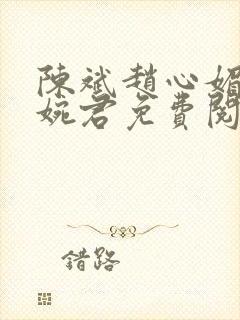 陳斌趙心媚
婉君免費閱
錯路